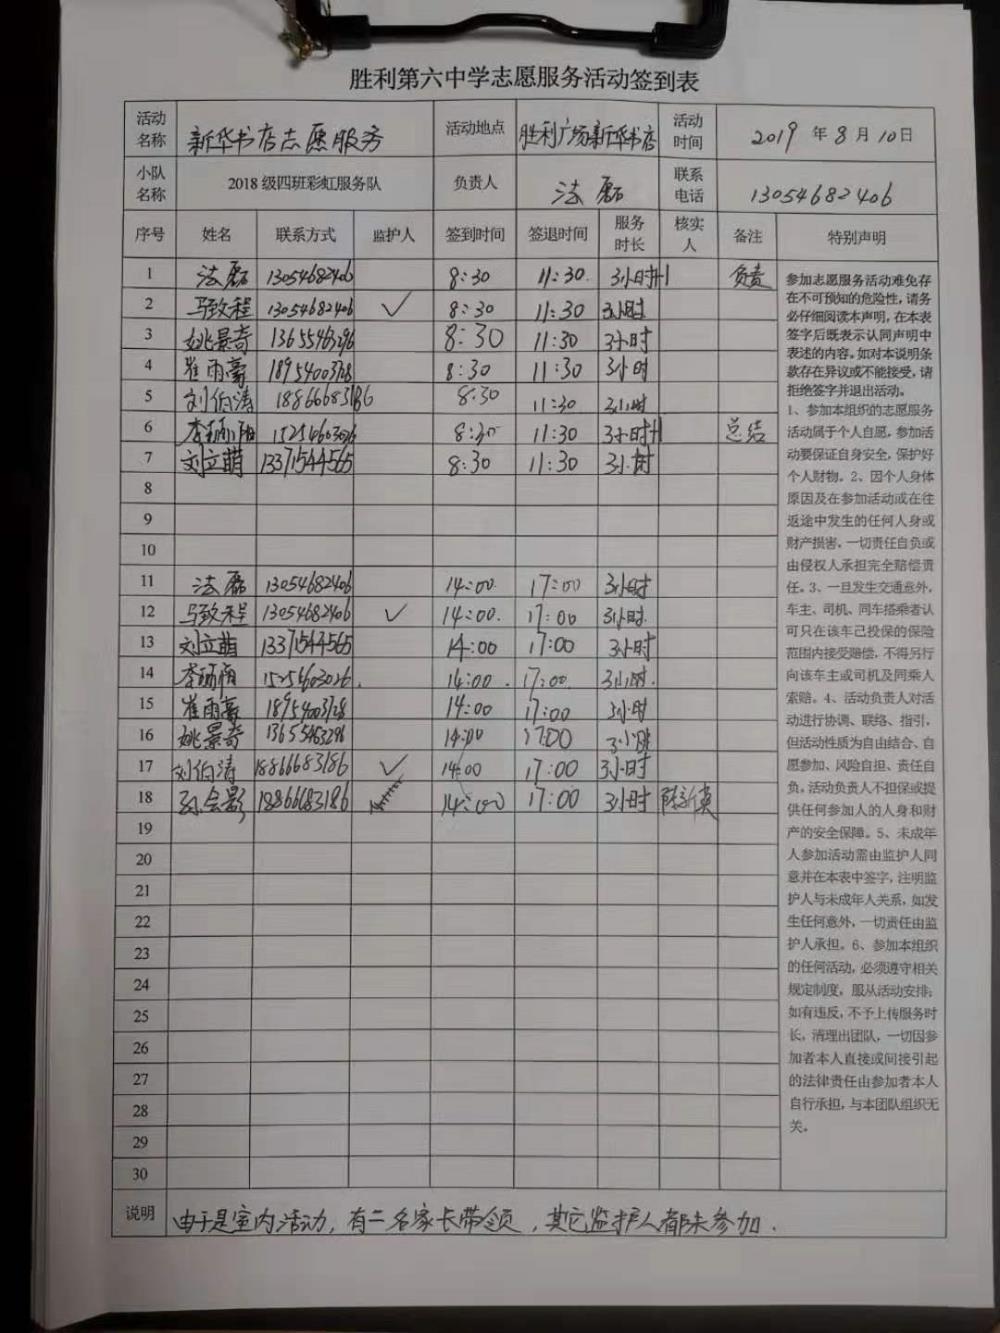 胜利第六中学志愿服务活动签到表
活动名称 新华书店志愿服务 活动地点 胜利广场新华书店 活动时间 2019年8月10日
小队名称 2018级四班彩虹服务队 负责人 法磊 联系电话 13054682406
序号 姓名 联系方式 监护人 签到时间 签退时间 服务时长 核实人 备注 特别声明
1 法磊 13054682406 8:30 11:30 3小时+1 负责
2 马致程 13054682406 ✓ 8:30 11:30 3小时
3 姚景奇 13655463296 8:30 11:30 3小时
4 崔雨豪 18954003728 8:30 11:30 3小时
5 刘伯涛 18866683186 8:30 11:30 3小时
6 15254603026 8:30 11:30 3小时+1 总结
7 刘立萌 13371544565 8:30 11:30 3小时
8
9
10
11 法磊 13054682406 14:00 17:00 3小时
12 马致程 13054682406 ✓ 14:00 17:00 3小时
13 刘立萌 13371544565 14:00 17:00 3小时
14 15254603026 14:00 17:00 3小时
15 崔雨豪 18954003728 14:00 17:00 3小时
16 姚景奇 13655463296 14:00 17:00 3小时
17 刘伯涛 18866683186 ✓ 14:00 17:00 3小时
18 孙会影 18866683186 14:00 17:00 3小时
19
20
21
22
23
24
25
26
27
28
29
30
参加志愿服务活动难免存
在不可预知的危险性,请务
必仔细阅读本声明,在本表
签字后既表示认同声明中
表述的内容。如对本说明条
款存在异议或不能接受,请
拒绝签字并退出活动。
1、参加本组织的志愿服务
活动属于个人自愿,参加活
动要保证自身安全,保护好
个人财物。2、因个人身体
原因及在参加活动或在往
返途中发生的任何人身或
财产损害,一切责任自负或
由侵权人承担完全赔偿责
任。3、一旦发生交通意外,
车主、司机、同车搭乘者认
可只在该车已投保的保险
范围内接受赔偿,不得另行
向该车主或司机及同乘人
索赔。4、活动负责人对活
动进行协调、联络、指引,
但活动性质为自由结合、自
愿参加、风险自担、责任自
负,活动负责人不担保或提
供任何参加人的人身和财
产的安全保障。5、未成年
人参加活动需由监护人同
意并在本表中签字,注明监
护人与未成年人关系,如发
生任何意外,一切责任由监
护人承担。6、参加本组织
的任何活动,必须遵守相关
规定制度,服从活动安排;
如有违反,不予上传服务时
长,清理出团队,一切因参
加者本人直接或间接引起
的法律责任由参加者本人
自行承担,与本团队组织无
关。
说明 由于是室内活动,有二名家长带领,其它监护人都未参加.